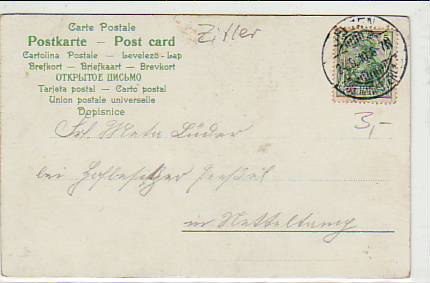 Carte Postale
Postkarte – Post card
Cartolina Postale – Levelező-Lap
Brefkort – Briefkaart – Brevkort
ОТКРЫТОЕ ПИСЬМО
Tarjeta postal – Carto postal
Union postale universelle
Dopisnice
Zitter
3,–
Frl. Meta Lüder
bei Hofbesitzer
in Nettelkamp